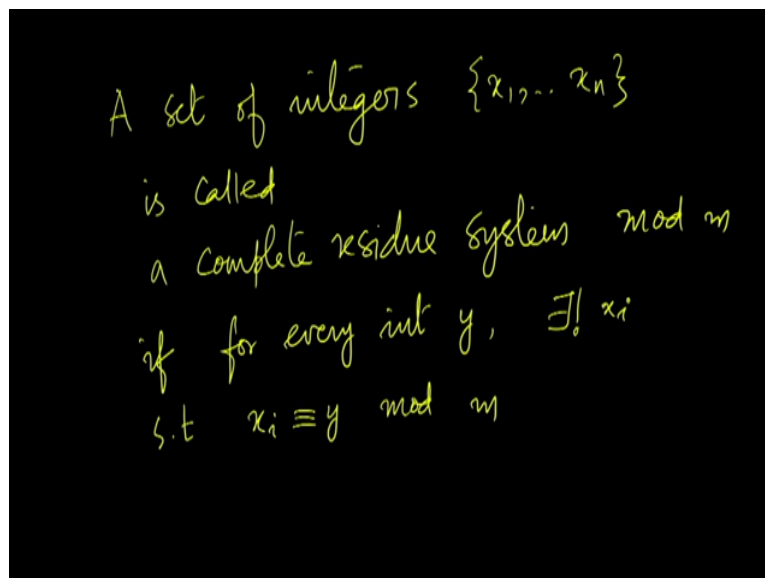 A set of integers {x₁,... xₙ}
is called
a complete residue system mod m
if for every int y, ∃! xᵢ
s.t xᵢ ≡ y mod m